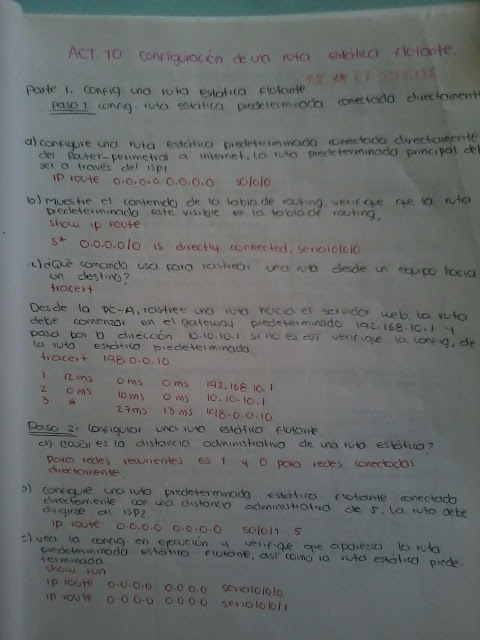 ACT. 10 configuración de una ruta estática flotante.
Parte 1. Config una ruta estática flotante
Paso 1. config. ruta estática predeterminada conectada directament
a) configure una ruta estática predeterminada conectada directamente
del Router-perimetral a internet. La ruta predeterminada principal de
ser a través del ISP1
ip route 0.0.0.0 0.0.0.0 s0/0/0
b) Muestre el contenido de la tabla de routing. verifique que la ruta
predeterminada esté visible en la tabla de routing.
show ip route
S* 0.0.0.0/0 is directly connected, serial0/0/0
c) ¿Qué comando usa para rastrear una ruta desde un equipo hacia
un destino?
tracert
Desde la PC-A, rastree una ruta hacia el servidor web. La ruta
debe comenzar en el gateway predeterminado 192.168.10.1 y
pasa por la dirección 10.10.10.1 si no es así verifique la config. de
la ruta estática predeterminada.
tracert 198.0.0.10
1 12ms 0ms 0ms 192.168.10.1
2 0ms 10ms 0ms 10.10.10.1
3 * 27ms 13ms 198.0.0.10
Paso 2: configurar una ruta estática flotante
a) ¿cuál es la distancia administrativa de una ruta estática?
Para redes recurrentes es 1 y 0 para redes conectadas
directamente.
b) configure una ruta predeterminada estática flotante conectada
directamente con una distancia administrativa de 5. La ruta debe
dirigirse al ISP2.
ip route 0.0.0.0 0.0.0.0 s0/0/1 5
c) vea la config en ejecución y verifique que aparezca la ruta
predeterminada estática flotante, así como la ruta estática prede-
terminada.
show run
ip route 0.0.0.0 0.0.0.0 serial0/0/0
ip route 0.0.0.0 0.0.0.0 serial0/0/1